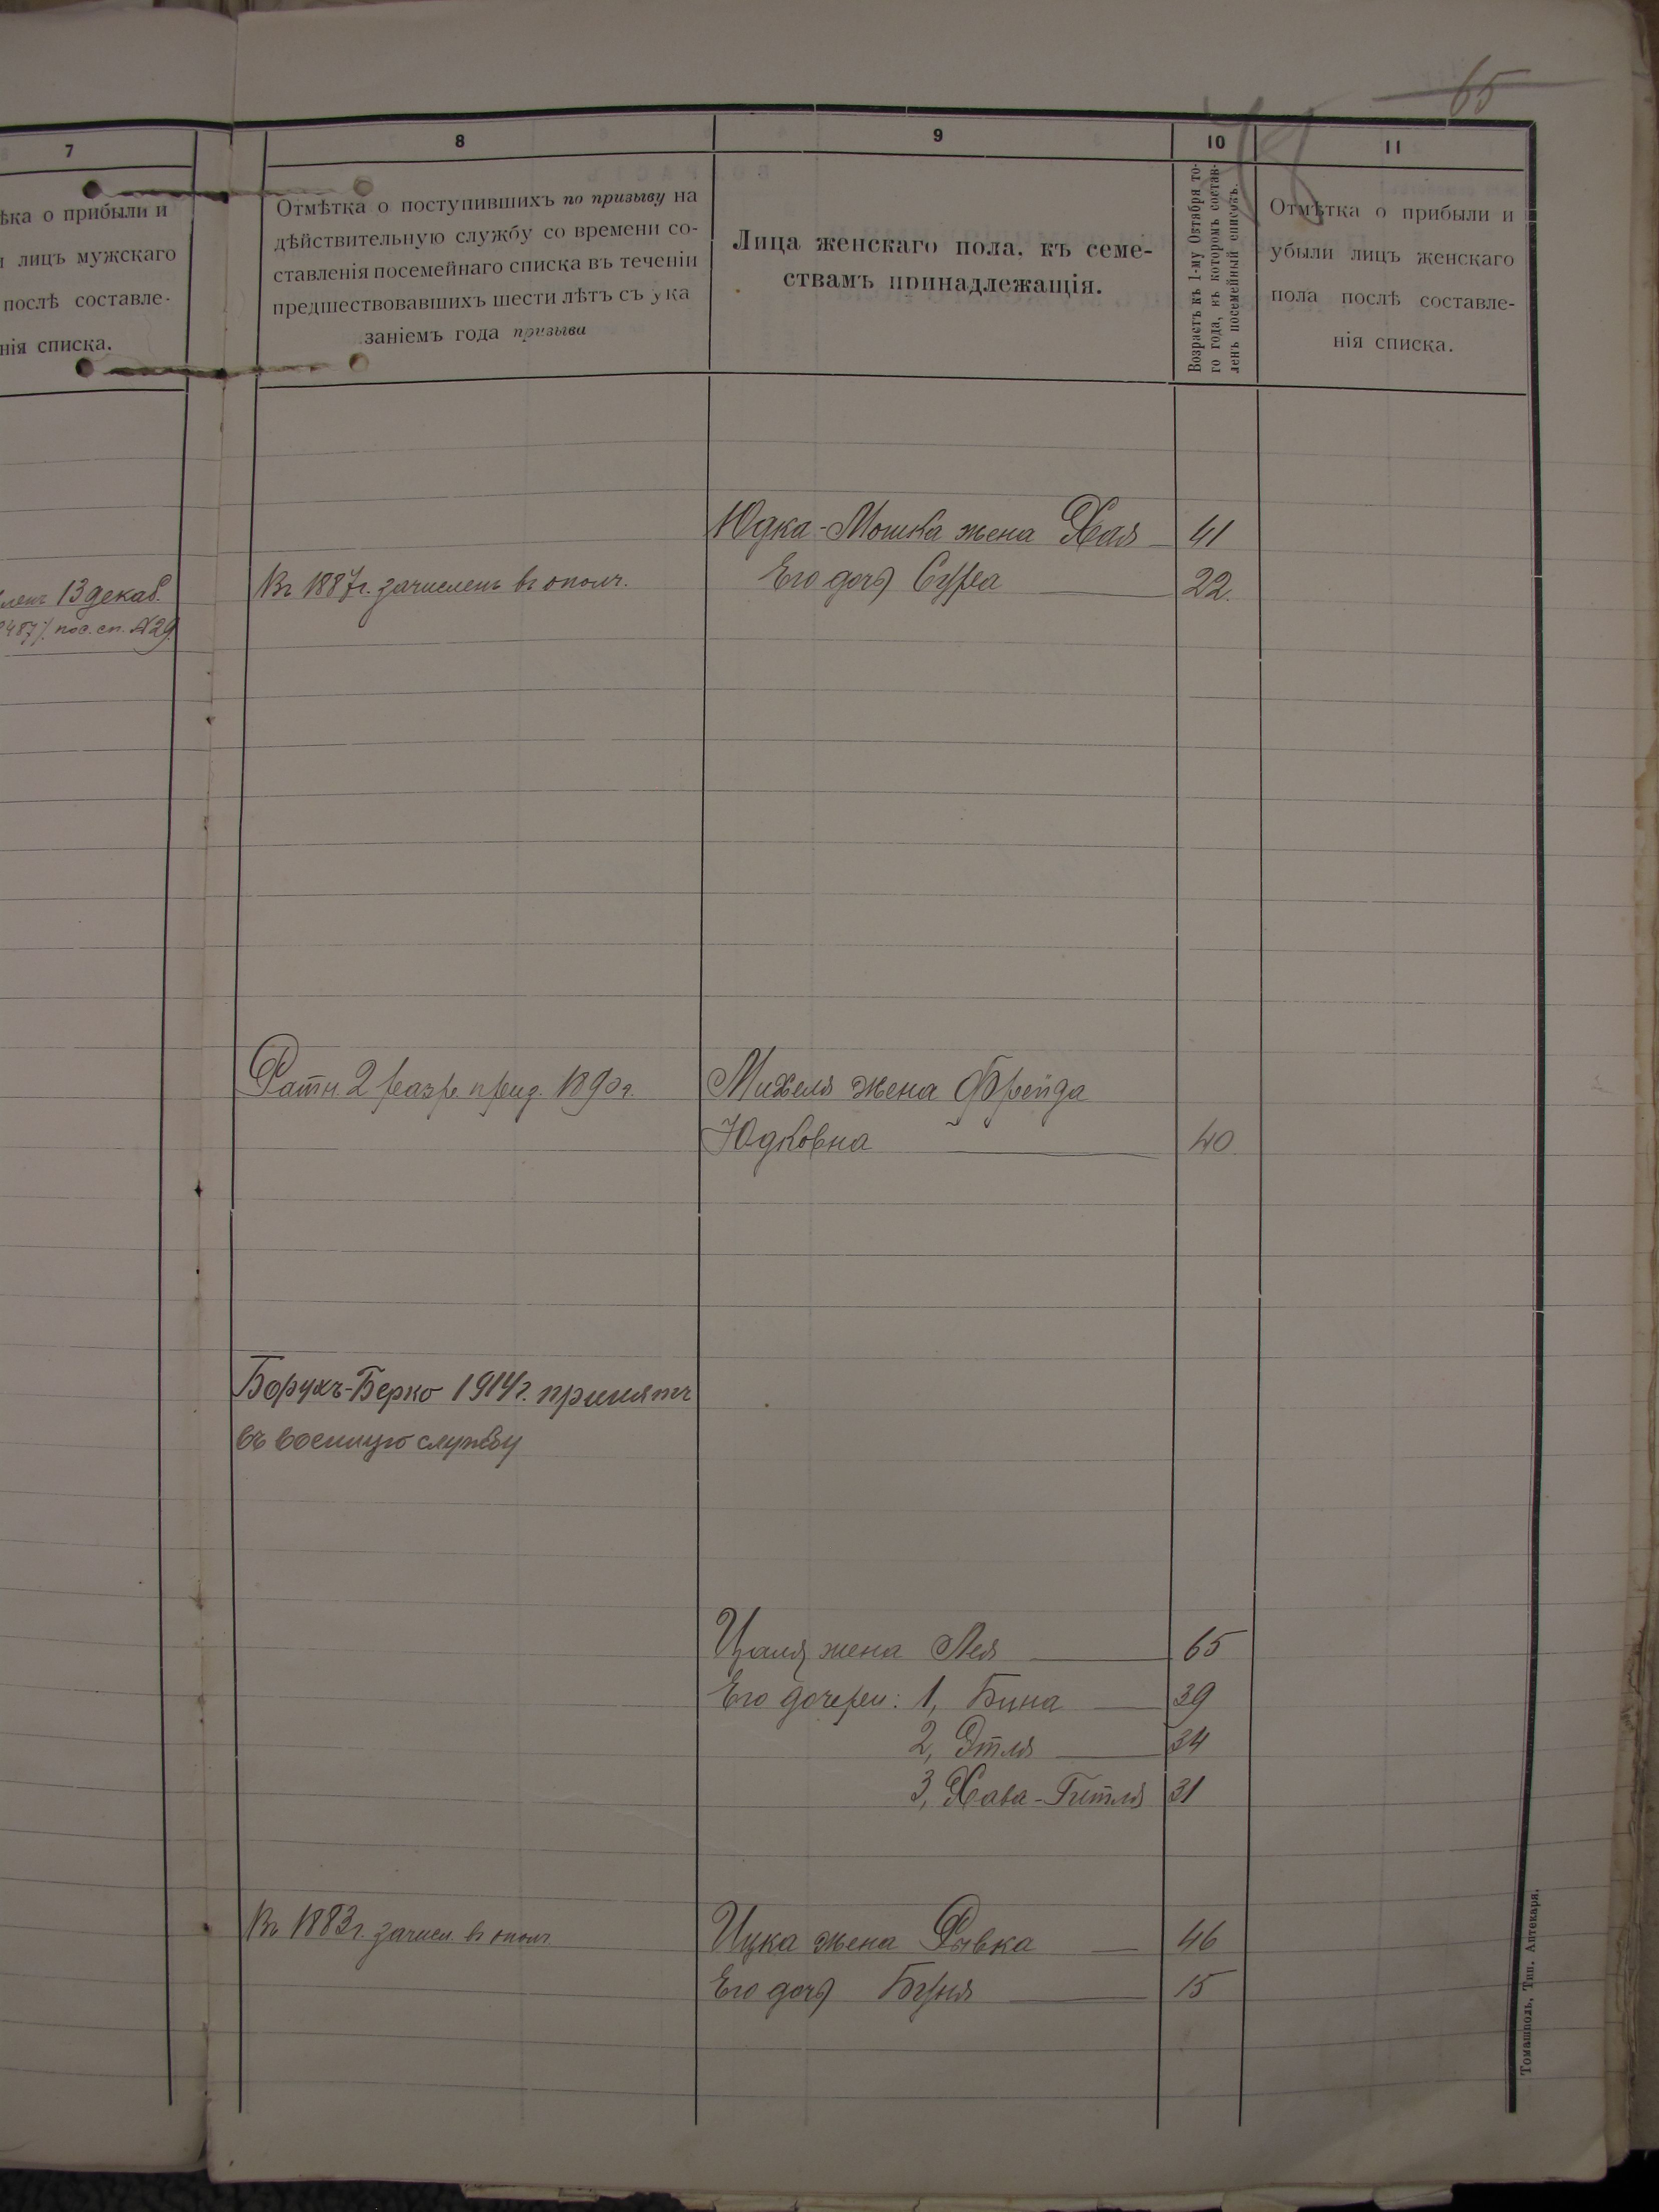 65
7
8
9
10
11
ѣка о прибыли и
лицъ мужскаго
послѣ составле-
нія списка.
Отмѣтка о поступившихъ по призыву на
дѣйствительную службу со времени со-
ставленія посемейнаго списка въ теченіи
предшествовавшихъ шести лѣтъ съ ука
заніемъ года призыва
Лица женскаго пола, къ семе-
ствамъ принадлежащія.
Возрастъ къ 1-му Октября то-
го года, къ которомъ состав-
ленъ посемейный списокъ.
Отмѣтка о прибыли и
убыли лицъ женскаго
пола послѣ составле-
нія списка.
Юдка-Мошка жена Хая 41
13 декаб.
пос. сп. №29
Въ 1887г. зачисленъ въ ополч.
Его дочь Сура 22.
Ратн. 2 разр. приз. 1890г.
Михеля жена Фрейда
Юдковна 40.
Борухъ-Берко 1914г. принятъ
въ военную службу
Цаля жена Лея 65
Его дочери: 1, Бина 39
2, Этля 34
3, Хава-Гитля 31
Въ 1883г. зачисл. въ ополч.
Ицка жена Рывка 46
Его дочь Буня 15
Томашполь, Тип. Аптекаря.